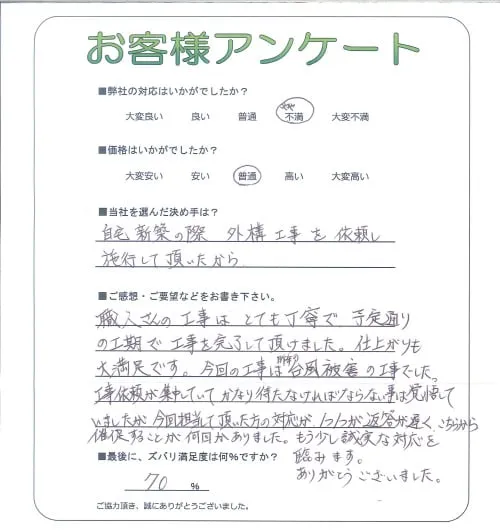 お客様アンケート
■弊社の対応はいかがでしたか？
大変良い 良い 普通 やや不満 大変不満
■価格はいかがでしたか？
大変安い 安い 普通 高い 大変高い
■当社を選んだ決め手は？
自宅新築の際 外構工事を依頼し
施行して頂いたから
■ご感想・ご要望などをお書き下さい。
職人さんの工事はとても丁寧で、予定通り
の工期で工事を完了して頂けました。仕上がりも
大満足です。今回の工事は台風被害の工事でした。
工事依頼が集中していてかなり待たなければならない事は覚悟して
いましたが今回担当して頂いた方の対応が、1つ1つが返答が遅く、こちらから
催促することが何回かありました。もう少し誠実な対応を
臨みます。
ありがとうございました。
■最後に、ズバリ満足度は何%ですか？
70 %
ご協力頂き、誠にありがとうございました。